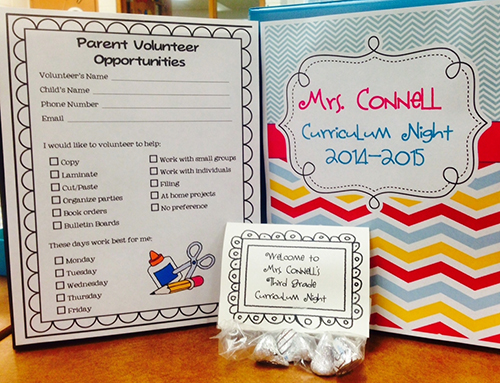 Parent Volunteer
Opportunities
Volunteer's Name
Child's Name
Phone Number
Email
I would like to volunteer to help:
Copy
Laminate
Cut/Paste
Organize parties
Book orders
Bulletin Boards
Work with small groups
Work with individuals
Filing
At home projects
No preference
These days work best for me:
Monday
Tuesday
Wednesday
Thursday
Friday
Mrs. Connell
Curriculum Night
2014-2015
Welcome to
Mrs. Connell's
Third Grade
Curriculum Night